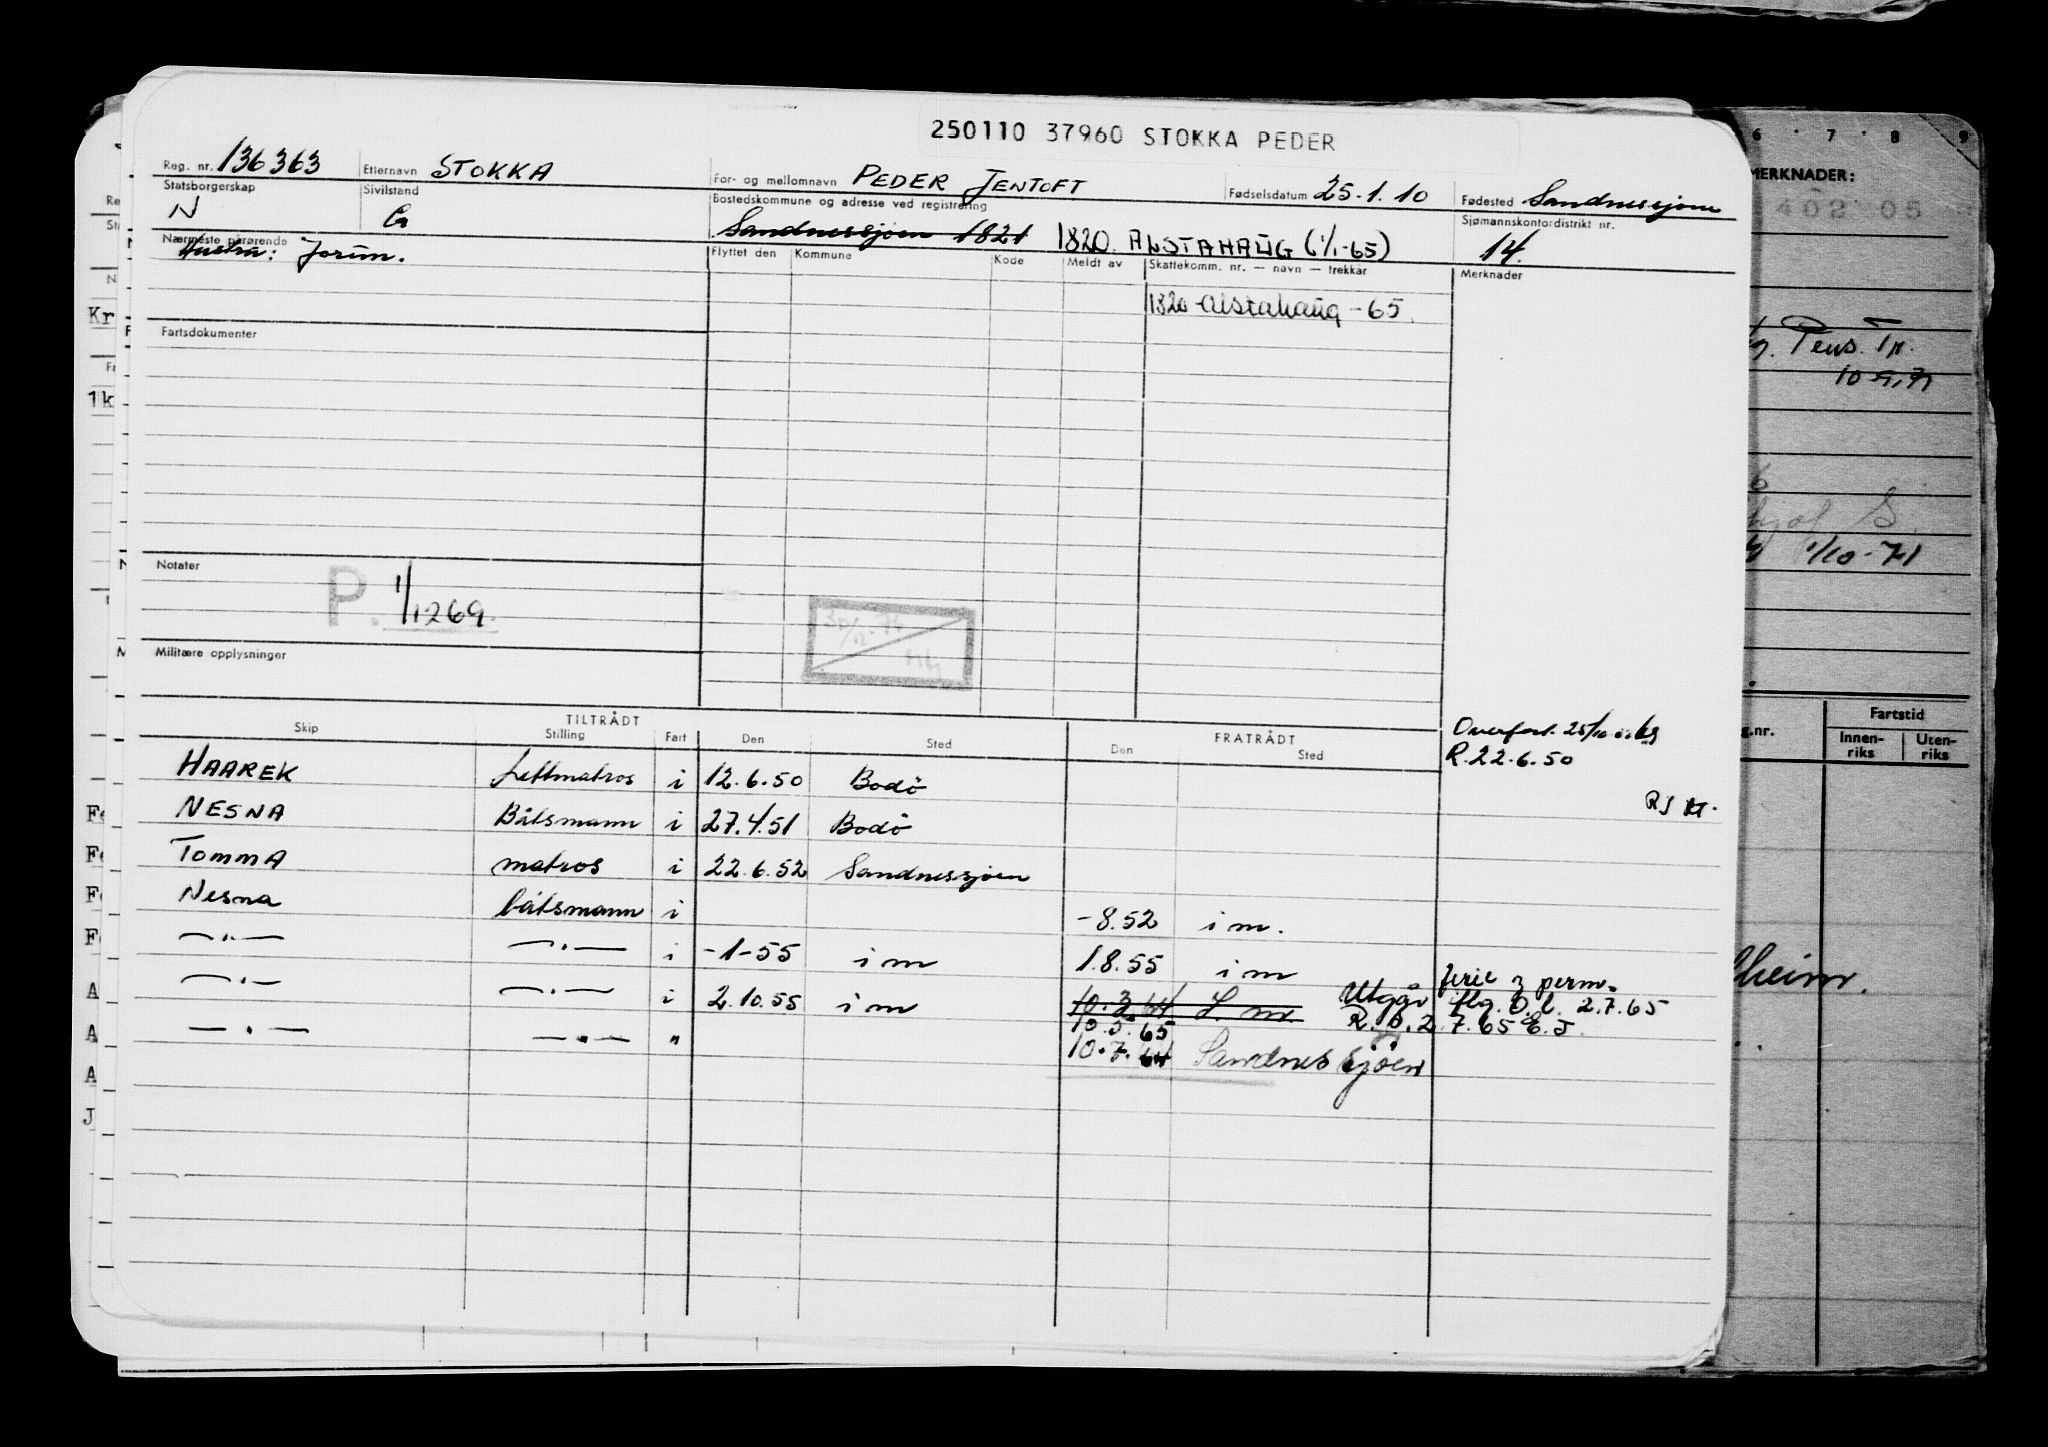 250110 37960 STOKKA PEDER
Reg. nr. 136363 Etternavn STOKKA For- og mellomnavn PEDER JENTOFT Fødselsdatum 25.1.10 Fødested Sandnessjøen
Statsborgerskap N Sivilstand G Bostedskommune og adresse ved registrering Sandnessjøen 1821 1820. ALSTAHAUG (1/1-65) Sjømannskontordistrikt nr. 14.
Nærmeste pårørende Hustru: Jorun. Flyttet den Kommune Kode Meldt av Skattekomm. nr. — navn — trekkar Merknader
1820 Alstahaug - 65.
Fartsdokumenter
Notater
P. 1/1269.
Militære opplysninger
TILTRÅDT FRATRÅDT
Skip Stilling Fart Den Sted Den Sted
R.22.6.50
HAAREK Lettmatros i 12.6.50 Bodö
NESNA Båtsmann i 27.4.51 Bodö
TOMMA matros i 22.6.52 Sandnessjøen
Nesna båtsmann i -8.52 i m.
— " — — " — i -1-55 i m 1.8.55 i m
— " — — " — i 2.10.55 i m 10.3.64 I. m. Utgår ferie & perm.
flg. O.l. 2.7.65
10.3.65 R.O.2.7.65 E.J.
— " — — " — " 10.7.64 Sandnessjöen
6 7 8 9
MERKNADER:
402 05
Pens. Tr.
1/10-71
g.nr. Fartstid
Innen-riks Uten-riks
heim.
Kr
1k